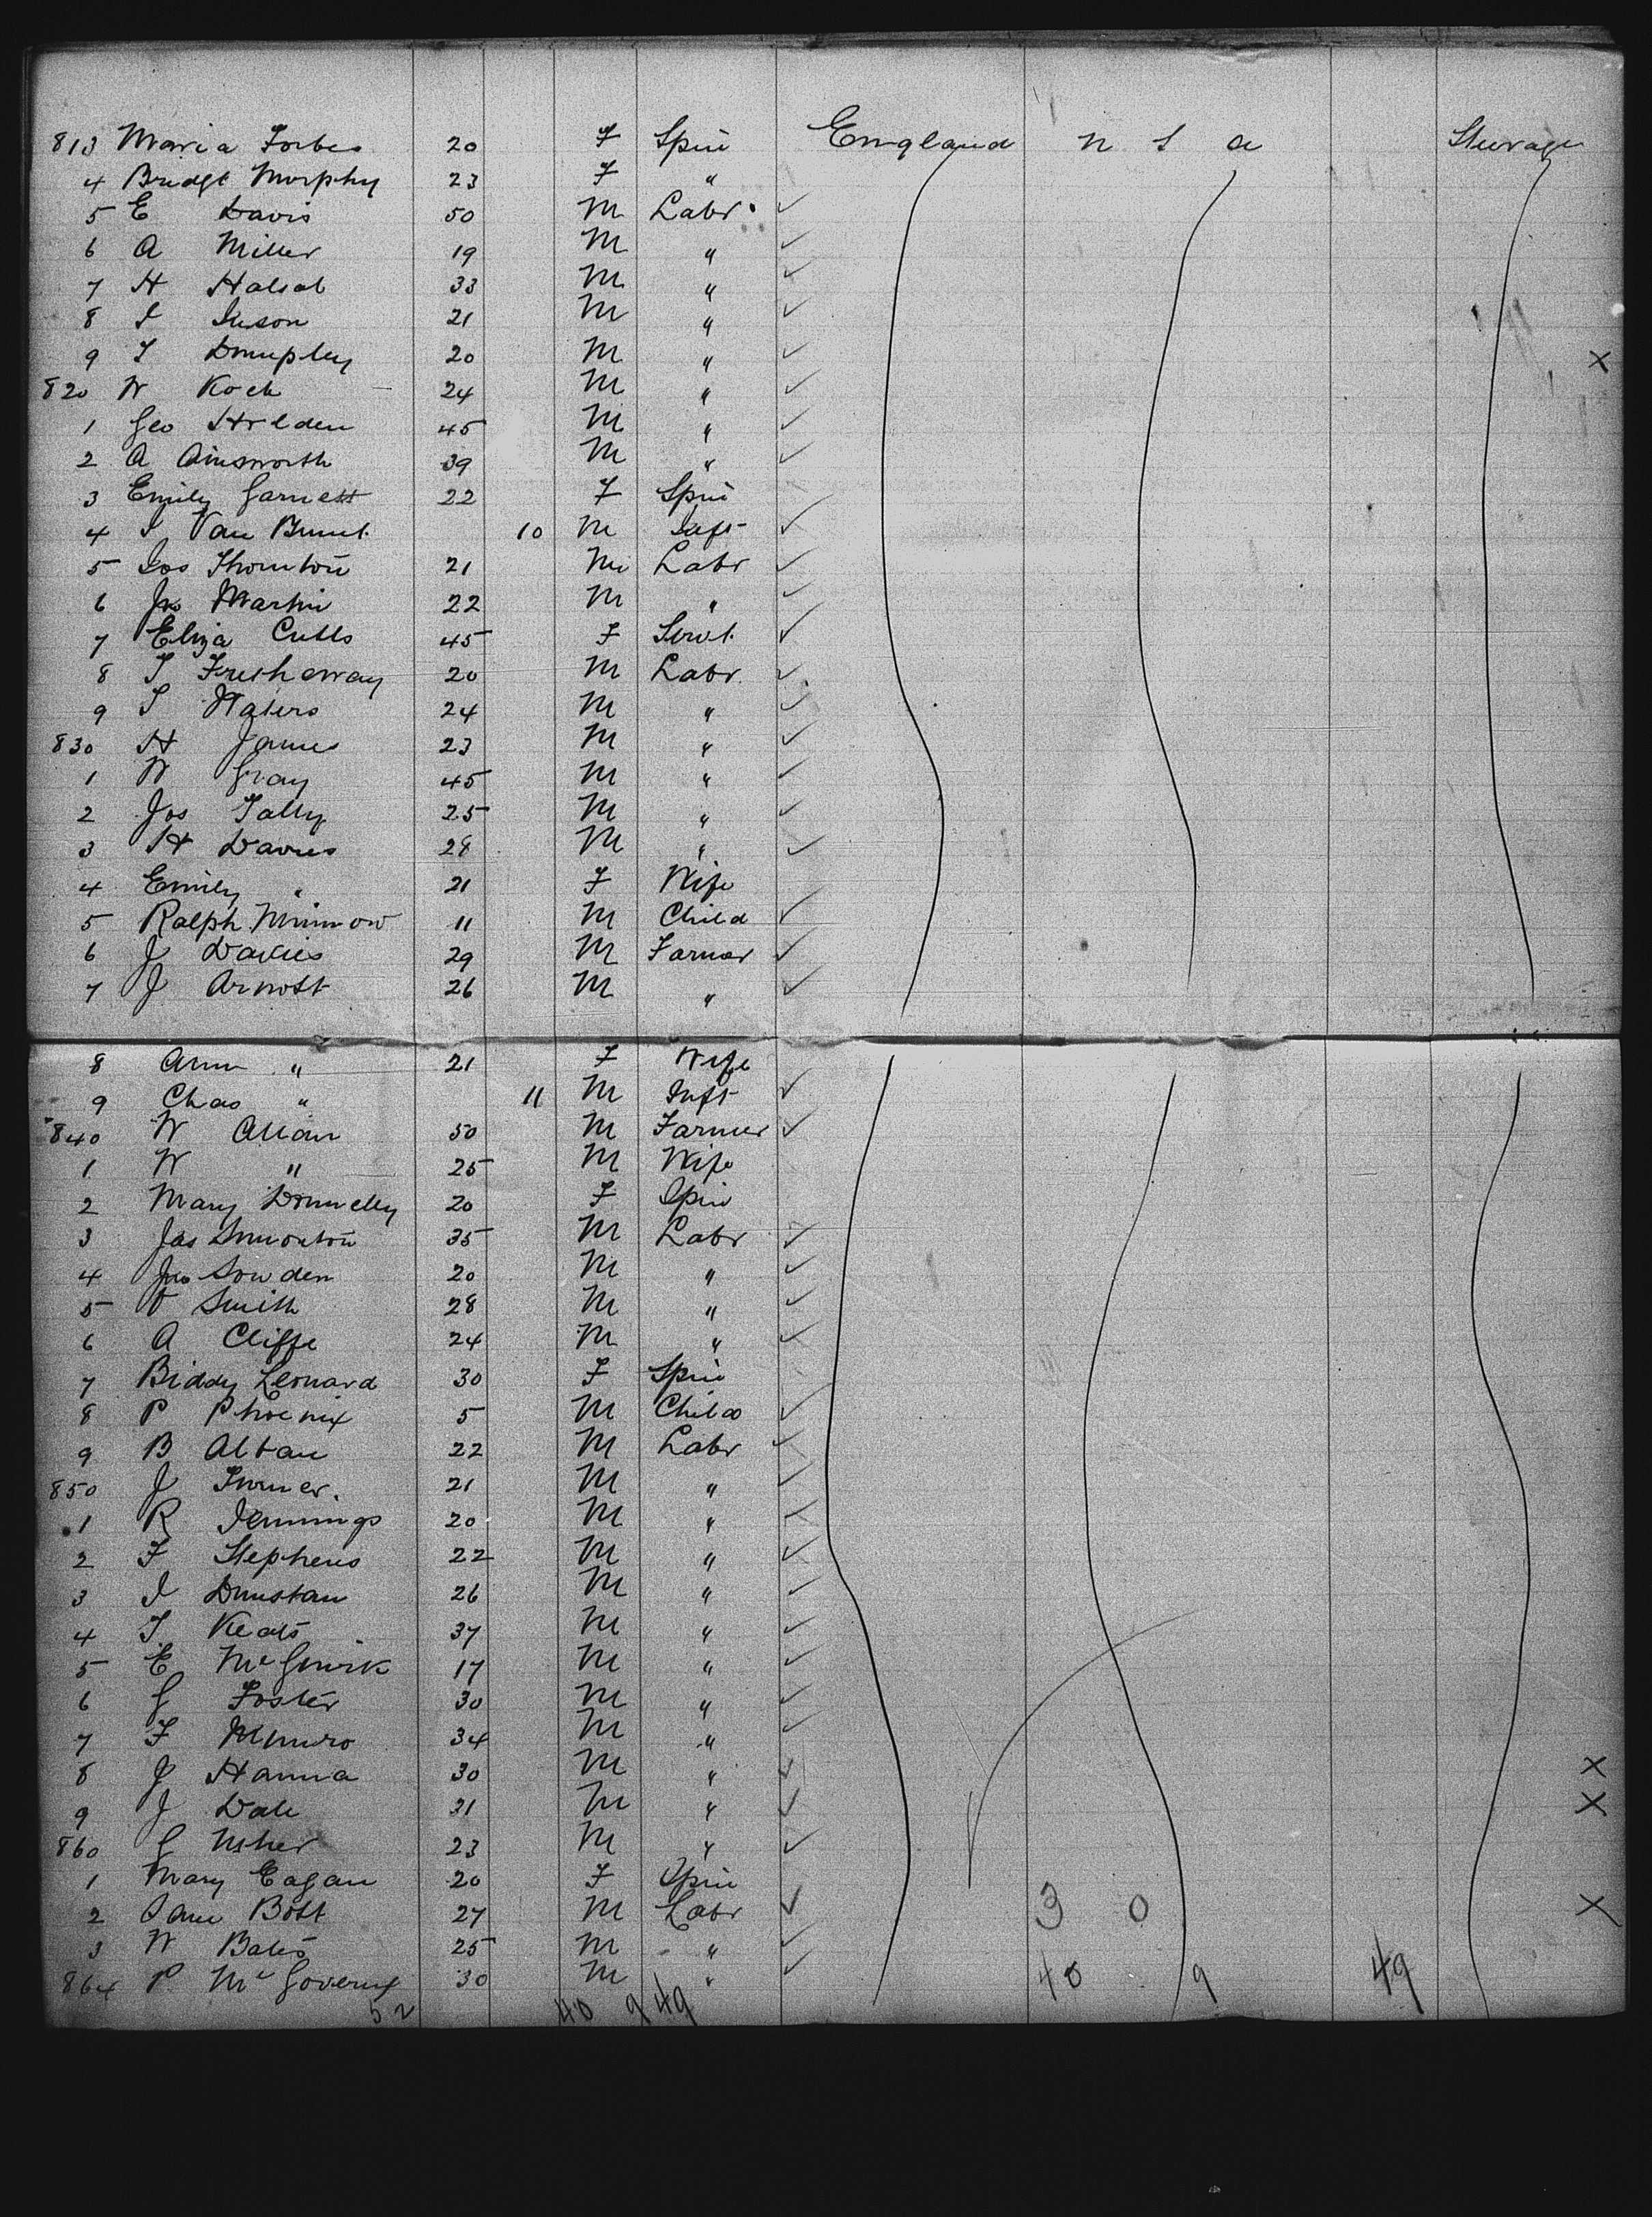 813 Maria Forbes 20 F Spin England U S A Steerage
4 Bridgt Murphy 23 F "
5 E Davis 50 M Labr
6 A Miller 19 M "
7 H Halsal 33 M "
8 I 21 M "
9 T 20 M " X
820 W Koch 24 M "
1 Geo Holden 45 M "
2 A Ainsworth 39 M "
3 Emily Garnett 22 F Spin
4 I Van Brunt 10 M Inft
5 Jos Thornton 21 M Labr
6 Jno Martin 22 M "
7 Eliza Cutts 45 F Servt
8 T 20 M Labr
9 T Waters 24 M "
830 H James 23 M "
1 W Gray 45 M "
2 Jos Tally 25 M "
3 H Davies 28 M "
4 Emily " 21 F Wife
5 Ralph Minnow 11 M Child
6 J Davies 29 M Farmer
7 J Arnott 26 M "
8 Ann " 21 F Wife
9 Chas " 11 M Inft
840 W Allan 50 M Farmer
1 W " 25 M Wife
2 Mary Donnelly 20 F Spin
3 Jas 35 M Labr
4 Jno Sowden 20 M "
5 Smith 28 M "
6 A Cliffe 24 M "
7 Biddy Leonard 30 F Spin
8 P Phoenix 5 M Child
9 B Alban 22 M Labr
850 J Turner 21 M "
1 R Jennings 20 M "
2 F Stephens 22 M "
3 I Dunstan 26 M "
4 T Keats 37 M "
5 E McGuirk 17 M "
6 G Foster 30 M "
7 F Munro 34 M "
8 J Hanna 30 M " X
9 J Dale 31 M " X
860 G Usher 23 M "
1 Mary Eagan 20 F Spin
2 Bott 27 M Labr 3 0 X
3 W Bates 25 M "
864 P McGovern 30 M " 40 9 49
52 40 9 49